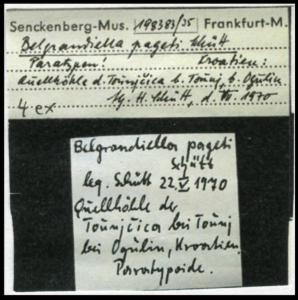 Senckenberg-Mus. 198383/35 Frankfurt-M.
Belgrandiella pageti Schütt
Paratypen! Kroatien:
Quellhöhle d. Tounjčica b. Tounj b. Ogulin
lg. H. Schütt, d. VI. 1970
4 ex
Belgrandiella pageti
Schütt
leg. Schütt 22.V 1970
Quellhöhle der
Tounjčica bei Tounj
bei Ogulin, Kroatien.
Paratypoide.